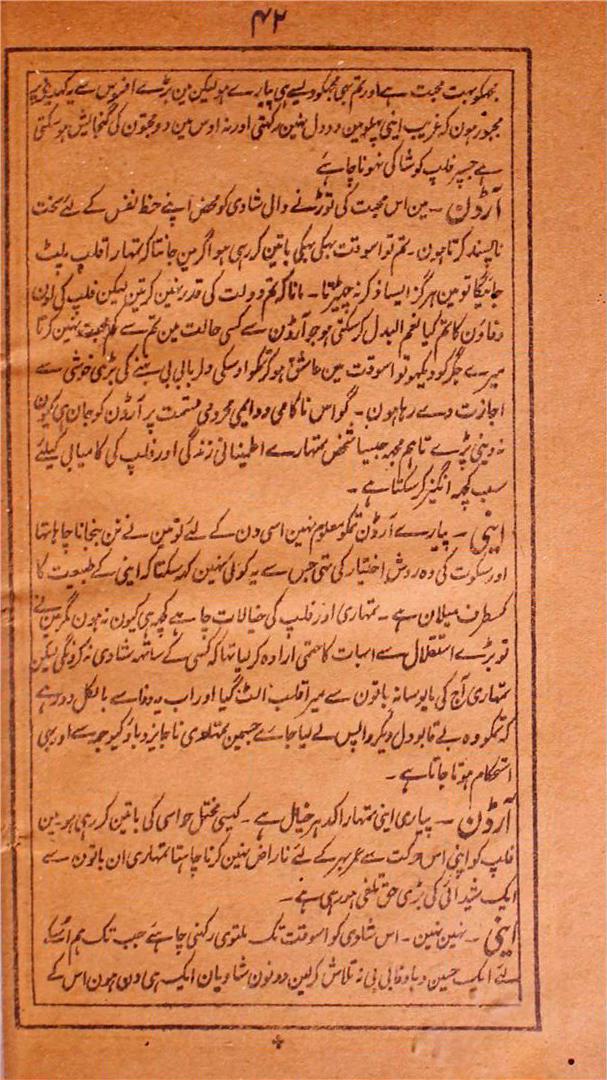 ۴۲
مجھکو بہت محبت ہے اور تم بھی مجھکو ویسے ہی پیارے ہو لیکن مین بڑے افسوس سے یہ کہنے پر
مجبور ہون کہ غریب اینی پہلو مین دو دل نہین رکھتی اور نہ اوس مین دو محبتون کی گنجائش ہو سکتی
ہے جسپر فلپ کو شاکی نہونا چاہئے
آرڈن ۔ مین اس محبت کی توڑنے والی شادی کو محض اپنے حظ نفس کے لئے سخت
ناپسند کرتا ہون ۔ تم تو اسوقت بہکی بہکی باتین کر رہی ہو اگر مین جانتا کہ تمہارا قلب پلٹ
جائیگا تو مین ہرگز ایسا ذکر نہ چھیڑتا ۔ مانا کہ تم دولت کی قدر نہین کرتین لیکن فلپ کی ان
وفاؤن کا تم کیا نعم البدل کر سکتی ہو جو آرڈن سے کسی حالت مین تم سے کم محبت نہین کرتا
میرے جگر کو دیکھو تو اسوقت مین عاشق ہو کر تمکو اوسکی دلربا بی بی بننے کی بڑی خوشی سے
اجازت دے رہا ہون ۔ گو اس ناکامی و دائمی محرومی قسمت پر آرڈن کو جان ہی کیون
نہ دینی پڑے تاہم مجھ جیسا شخص تمہارے اطمینانی زندگی اور فلپ کی کامیابی کیلئے
سب کچھ انگیز کر سکتا ہے ۔
اینی ۔ پیارے آرڈن تمکو معلوم نہین اسی دن کے لئے تو مین نے نن بنجانا چاہا تھا
اور سکوت کی وہ روش اختیار کی تھی جس سے یہ کوئی نہین کہہ سکتا کہ اینی کے طبیعت کا
کسطرف میلان ہے ۔ تمہاری اور فلپ کی خیالات چاہے کچھ ہی کیون نہ ہون مگر مین نے
تو بڑے استقلال سے اسبات کا حتمی ارادہ کر لیا تھا کہ کسی کے ساتھ شادی نہ کرونگی لیکن
تمہاری آج کی مایوسانہ باتون سے میرا قلب الٹ گیا اور اب یہ وفا سے بالکل دور ہے
کہ تمکو وہ بے قابو دل دیکر واپس لے لیا جائے جسمین تمہاری ناجایز دباؤ کیوجہ سے اور بھی
استحکام ہوتا جاتا ہے ۔
آرڈن ۔ پیاری اینی تمہارا کدہر خیال ہے ۔ کیسی مختل حواسی کی باتین کر رہی ہو مین
فلپ کو اپنی اس حرکت سے عمر بھر کے لئے ناراض نہین کرنا چاہتا تمہاری ان باتون سے
ایک شیدائی کی بڑی حق تلفی ہو رہی ہے ۔
اینی ۔ نہین نہین ۔ اس شادی کو اسوقت تک ملتوی رکھنی چاہئے جب تک ہم اوسکے
لئے ایک حسین و باوفا بی بی نہ تلاش کرلین دونون شادیان ایک ہی دن ہون اس کے